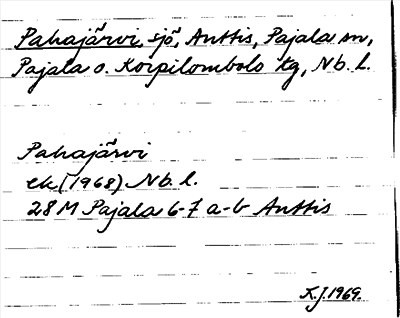 Pahajärvi, sjö, Anttis, Pajala sn,
Pajala o. Korpilombolo tg, Nb. l.
Pahajärvi
ek (1968) Nb. l.
28M Pajala 6-7 a-b Anttis
K.J. 1969.